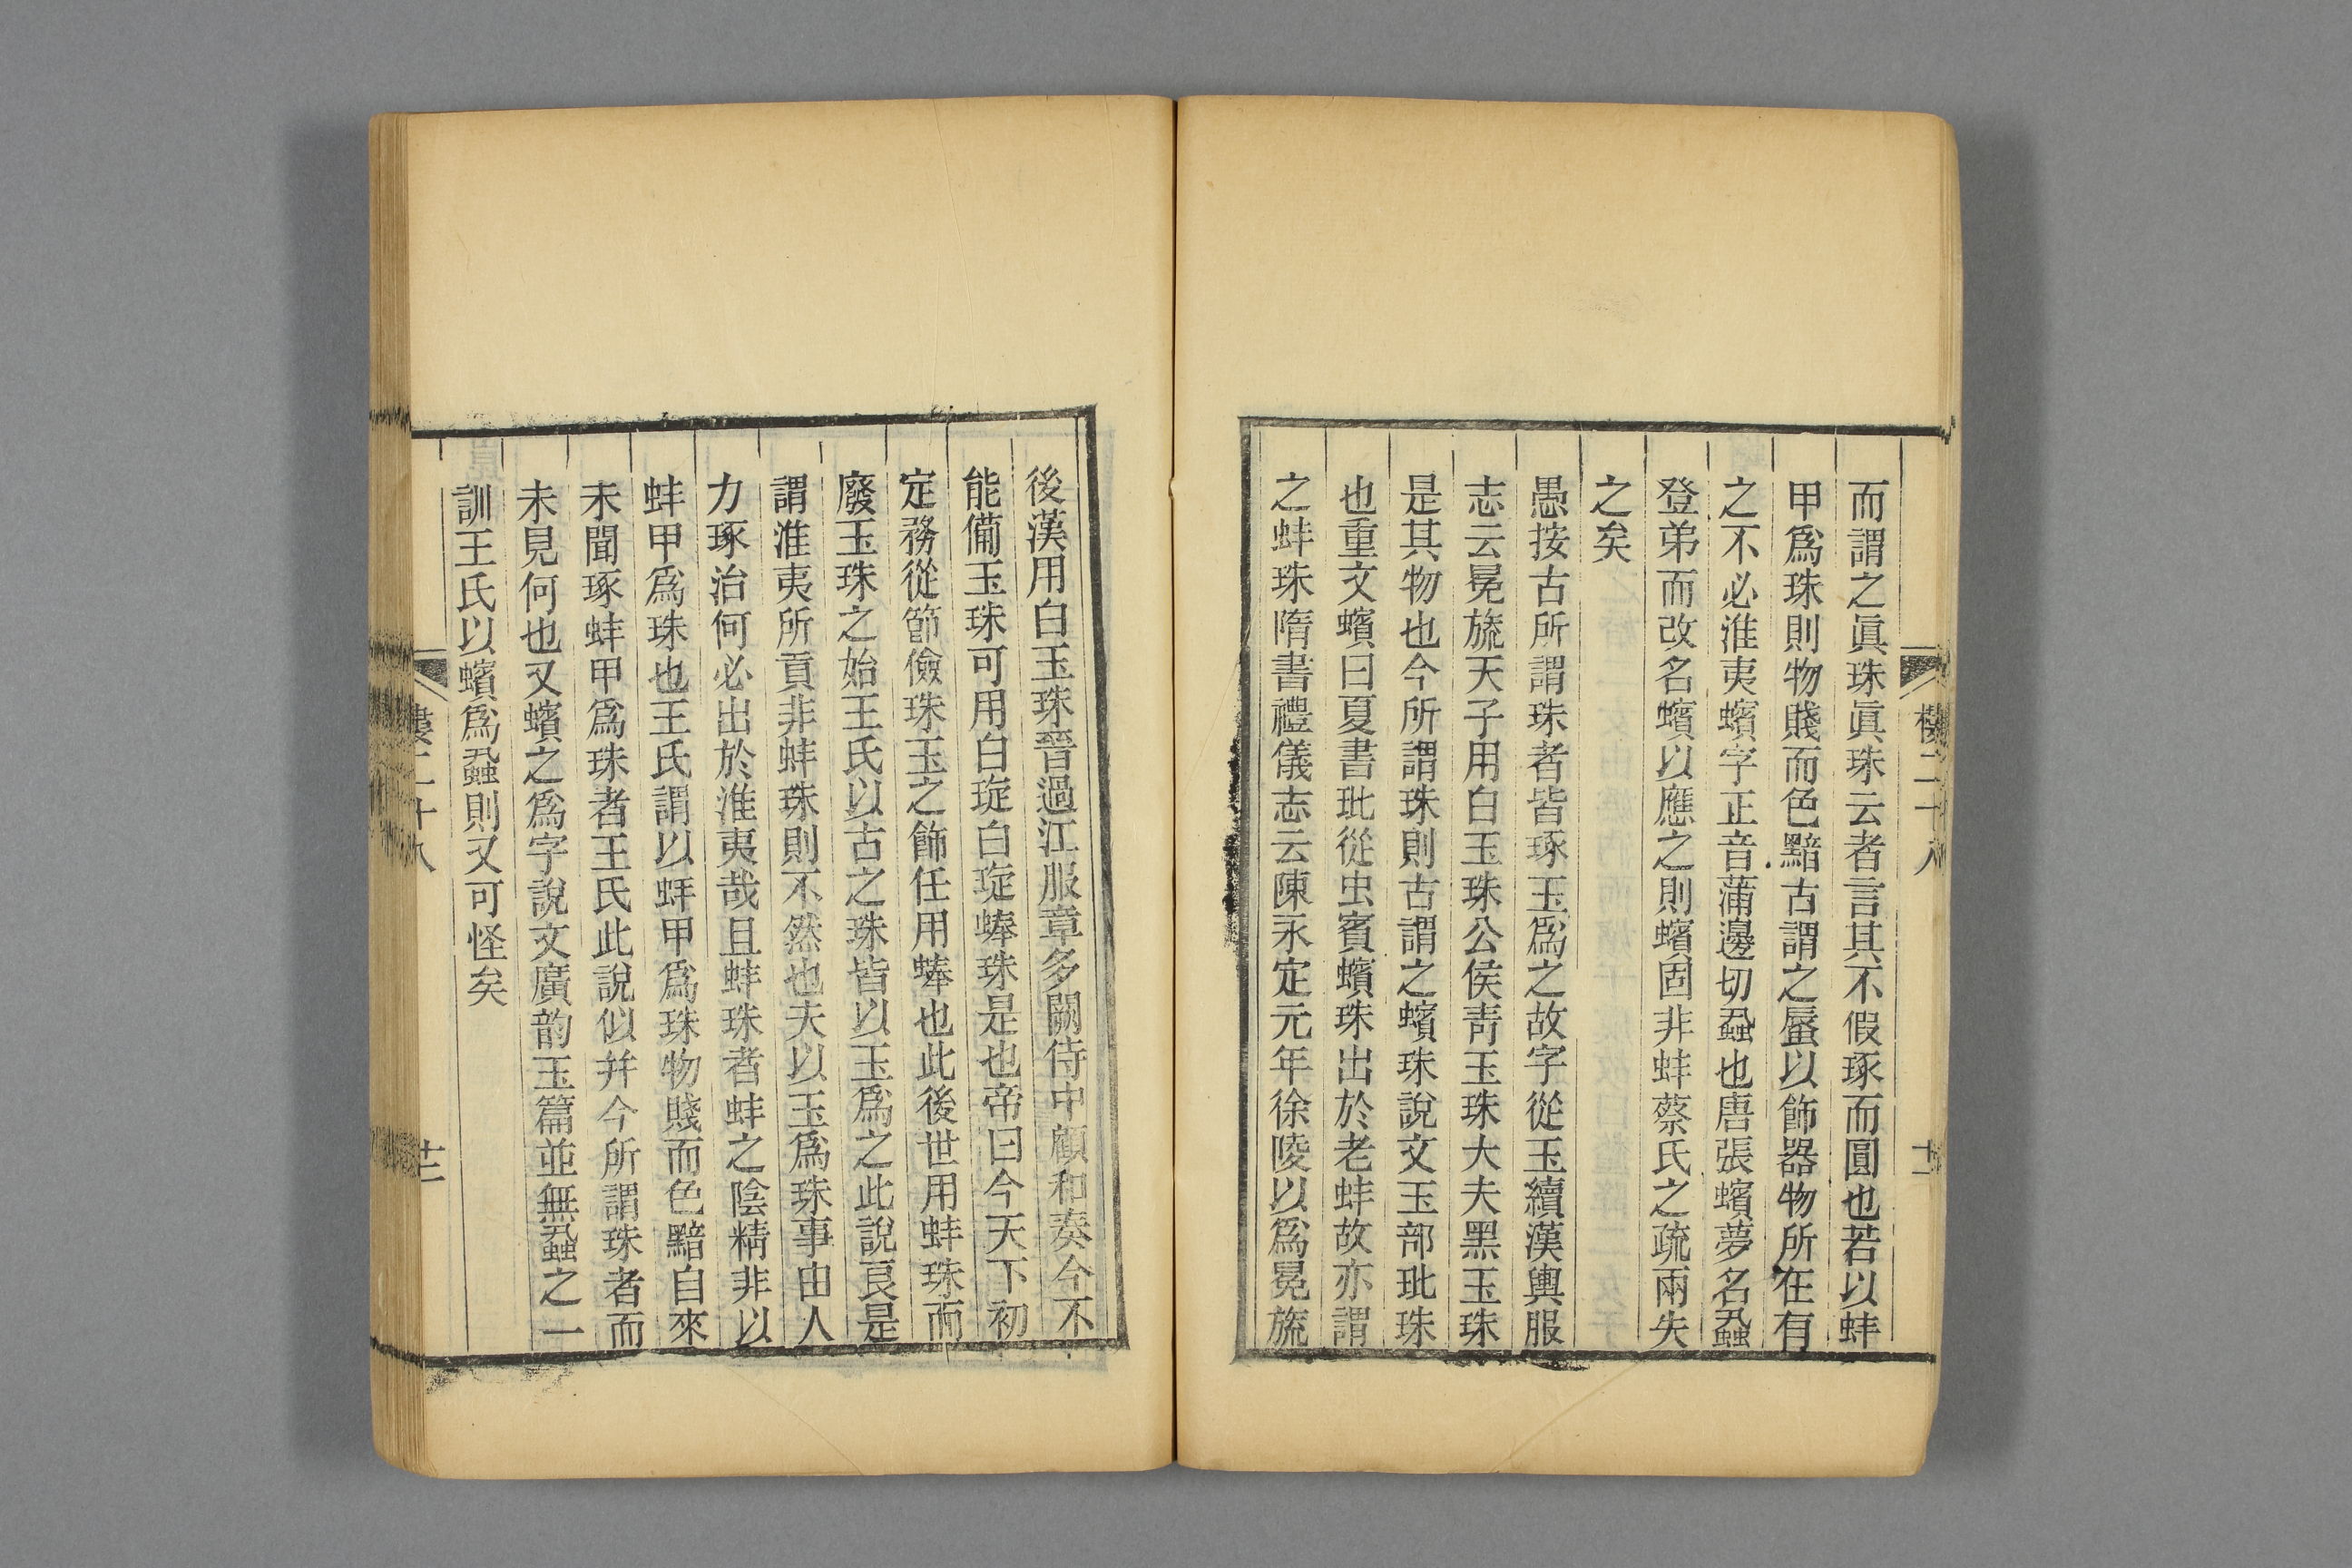 而謂之眞珠眞珠云者言其不假琢而圓也若以蚌
甲爲珠則物賤而色黯古謂之蜃以飾器物所在有
之不必淮夷蠙字正音蒲邊切蝨也唐張蠙夢名蝨
登弟而改名蠙以應之則蠙固非蚌蔡氏之疏兩失
之矣
愚按古所謂珠者皆琢玉爲之故字從玉續漢輿服
志云冕旒天子用白玉珠公侯靑玉珠大夫黑玉珠
是其物也今所謂珠則古謂之蠙珠說文玉部玭珠
也重文蠙曰夏書玭從虫賓蠙珠出於老蚌故亦謂
之蚌珠隋書禮儀志云陳永定元年徐陵以爲冕旒
後漢用白玉珠晉過江服章多闕侍中顧和奏今不
能備玉珠可用白琁白琁蜯珠是也帝曰今天下初
定務從節儉珠玉之飾任用蜯也此後世用蚌珠而
廢玉珠之始王氏以古之珠皆以玉爲之此說良是
謂淮夷所貢非蚌珠則不然也夫以玉爲珠事由人
力琢治何必出於淮夷哉且蚌珠者蚌之陰精非以
蚌甲爲珠也王氏謂以蚌甲爲珠物賤而色黯自來
未聞琢蚌甲爲珠者王氏此說似幷今所謂珠者而
未見何也又蠙之爲字說文廣韵玉篇並無蝨之一
訓王氏以蠙爲蝨則又可怪矣
樓二十八